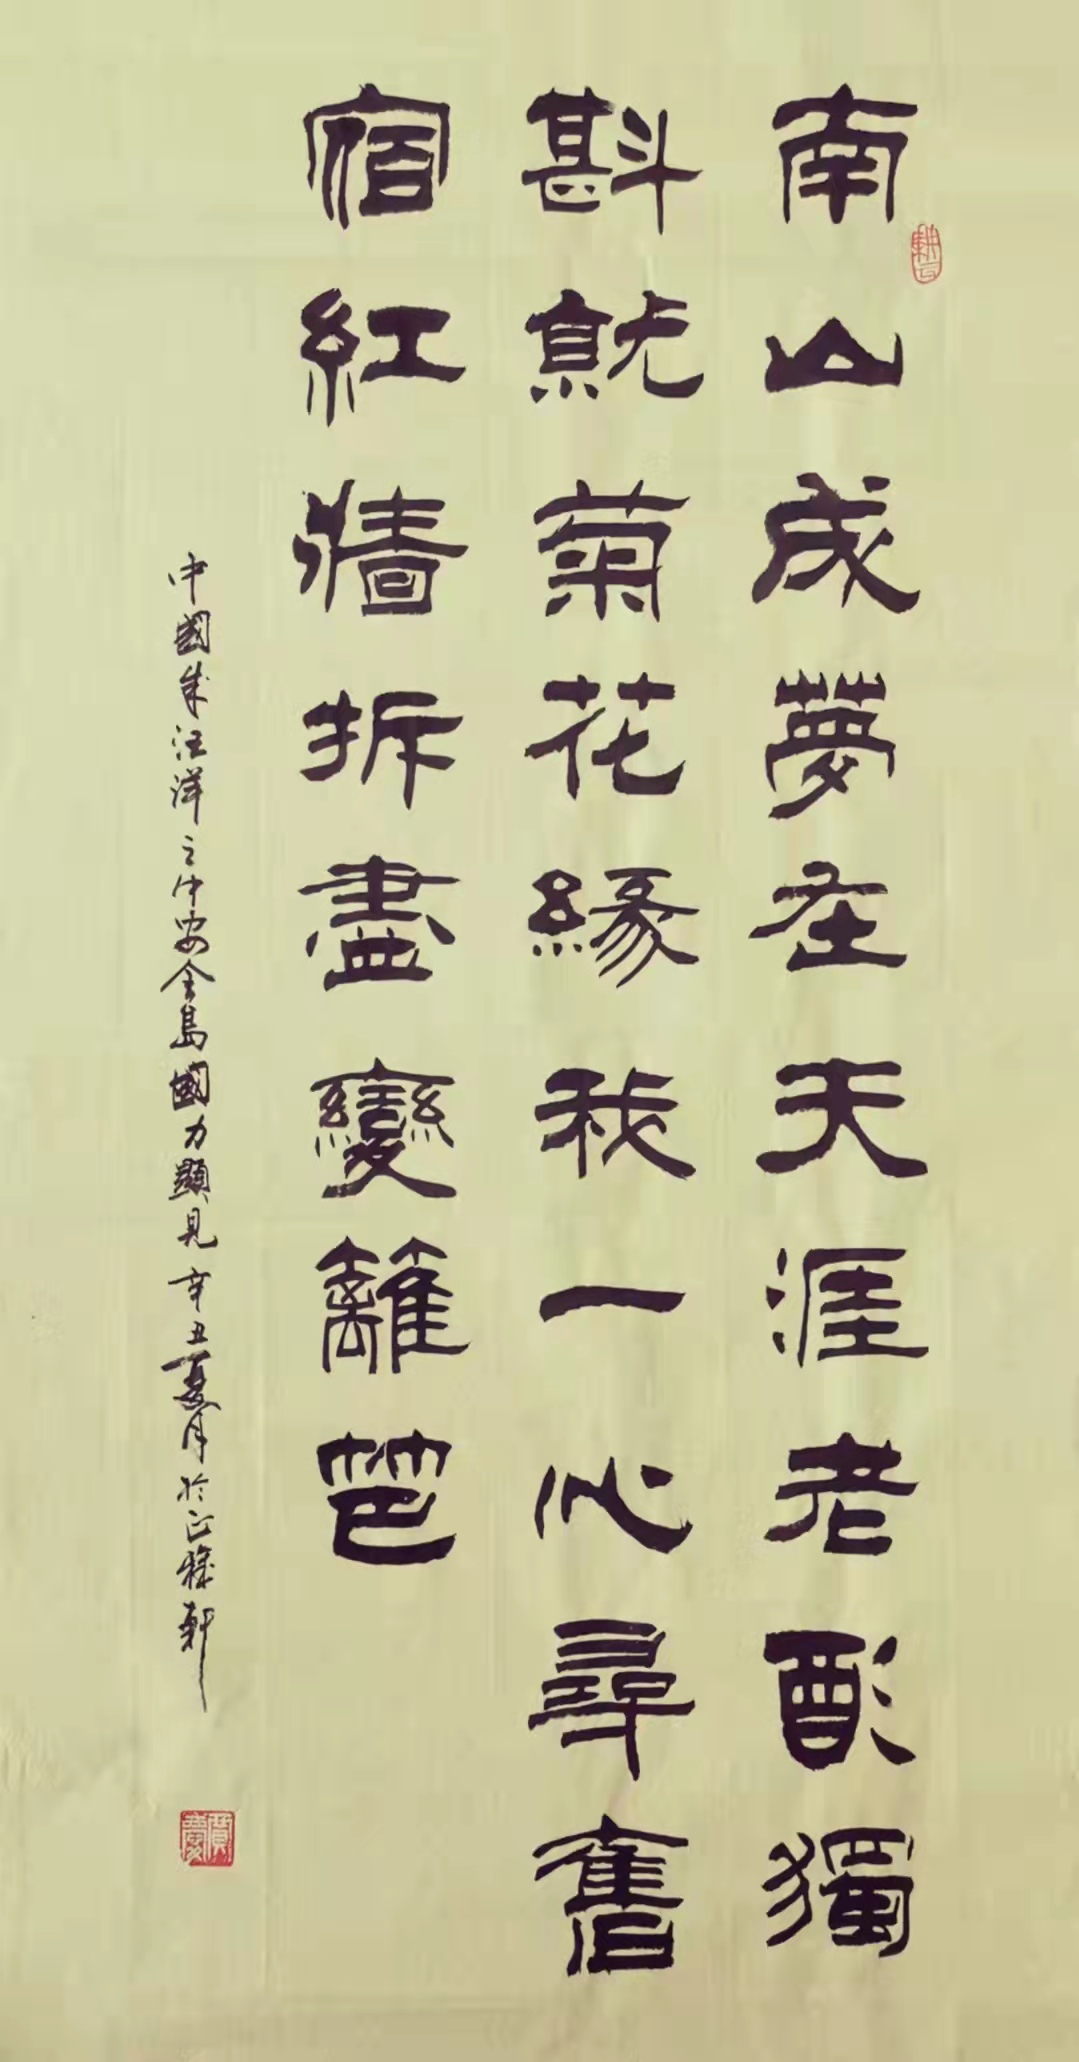 南山成夢在天涯老酌獨
斟就菊花緣我一心尋舊
宿紅牆拆盡變籬笆
中國成汪洋之中安全島國力顯見辛丑夏月於正稼軒